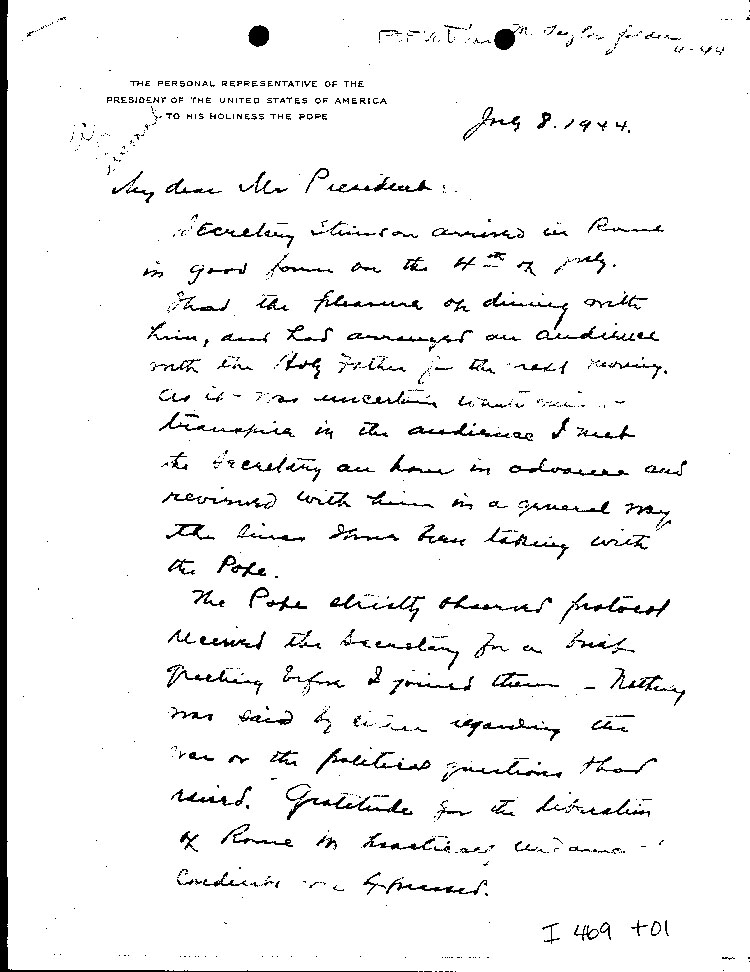 M. Taylor folder
4-44
THE PERSONAL REPRESENTATIVE OF THE
PRESIDENT OF THE UNITED STATES OF AMERICA
TO HIS HOLINESS THE POPE
July 8. 1944.
My dear Mr President:
Secretary Stimson arrived in Rome
in good form on the 4th of July.
I had the pleasure of dining with
him, and had arranged an audience
with the Holy Father for the next morning.
As it was uncertain what
transpire in the audience I met
the Secretary an hour in advance and
reviewed with him in a general way
the lines I have been taking with
the Pope.
The Pope strictly observed protocol
received the Secretary for a brief
greeting before I joined them - Nothing
was said by either regarding the
war or the political questions I had
raised. Gratitude for the liberation
of Rome in practically
condition was expressed.
I 469 +01